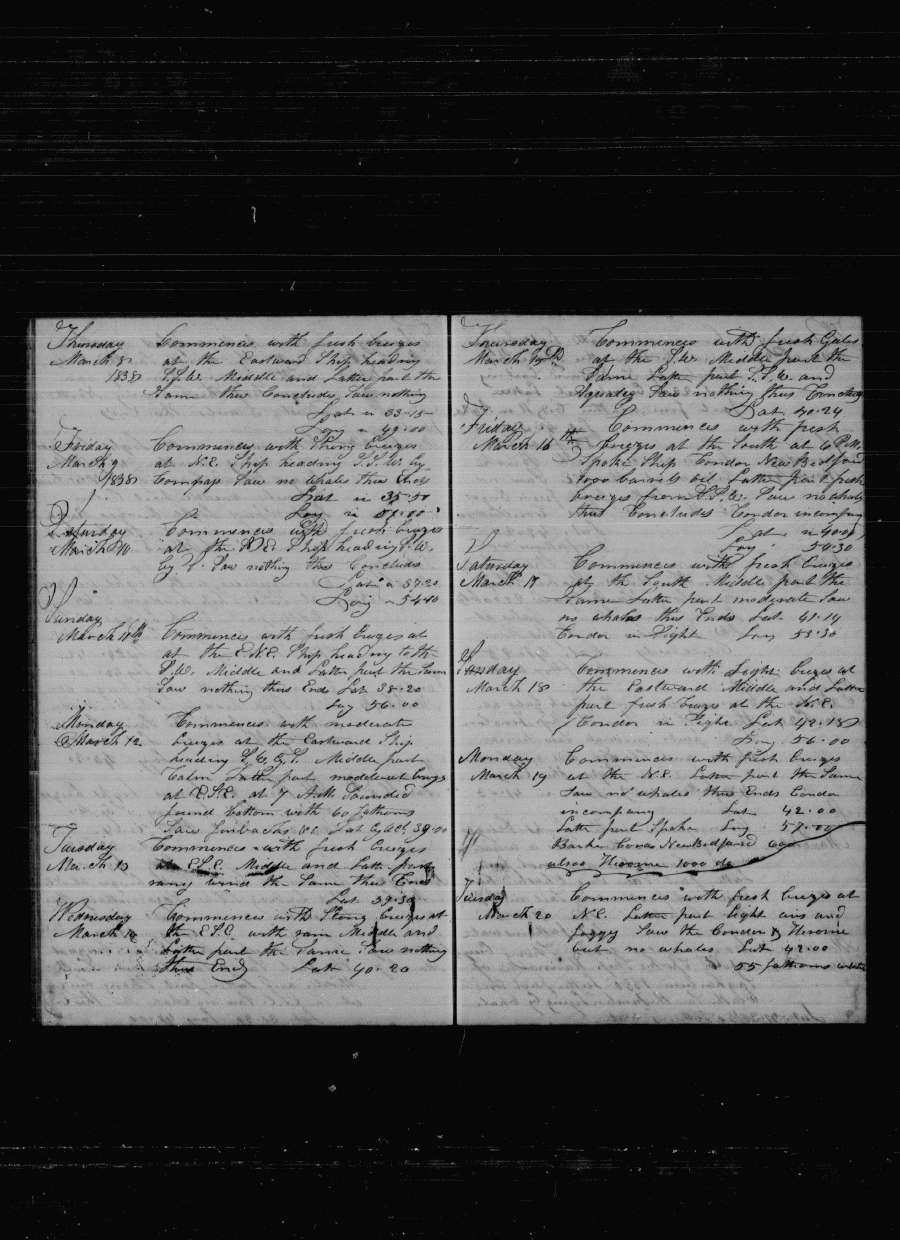 Thursday Commences with fresh breezes
March 8 at the Eastward Ship heading
1838 S.S.W. Middle and Latter part the
Same thus Concludes, Saw nothing
Lat in 33-15
Long in 49.00
Friday Commences with Strong breezes
March 9 at N.E. Ship heading S.S.W. by
1838 Compass Saw no whales thus Ends
Lat in 35-50
Long in
Saturday Commences with fresh breezes
March 10 at the Ship heading S.W.
by S. Saw nothing thus Concludes
Lat in 37.20
Long 54.40
Sunday
March 11th Commences with fresh breezes at
at the E.N.E. Ship heading to the
S.W. Middle and Latter part the Same
Saw nothing thus Ends Lat 38-20
Long 56.00
Monday Commences with moderate
March 12 breezes at the Eastward Ship
heading Middle part
Calm Latter part modderat breezes
at E.S.E. at 7 A.M. Sounded
found bottom with 60 fathoms
Saw finbacks &c. Lat by Act 39.00
Tuesday Commences with fresh breezes
March 13 at E.S.E. Middle and Latter part
rany wind the Same thus Ends
Lat 39.30
Wednesday Commences with Strong breezes at
March 14 the E.S.E. with rain Middle and
Latter part the Same Saw nothing
thus Ends Lat 40.20
Thursday Commences with fresh Gales
March 15th at the S.W. Middle part the
Same Latter part S.S.W. and
Squaley Saw nothing thus Concludes
Lat 40.24
Friday Commences with fresh
March 16th breezes at the South at 6 P.M.
Spoke Ship Condor New Bedford
1000 barrels oil Latter part fresh
breezes from S.S.W. Saw no whales
thus Concludes Condor in company
Lat in
Long 54.30
Saturday Commences with fresh breezes
March 17 at the South Middle part the
Same Latter part moderate Saw
no whales thus Ends Lat 41.14
Condor in Sight Long 55.30
Sunday Commences with Light breezes at
March 18 the Eastward Middle and Latter
part fresh breezes at the N.E.
Condor in Sight Lat 42.18
Long 56.00
Monday Commences with fresh breezes
March 19 at the N.E. Latter part the Same
Saw no whales thus Ends Condor
incompany Lat 42.00
Latter part Spoke Long 57.00
Bark New Bedford
alsos Heroine 1000 do
Tuesday Commences with fresh breezes at
March 20 N.E. Latter part Light airs and
foggy Saw the Condor & Heroine
but no whales Lat 42.00
55 fathoms water